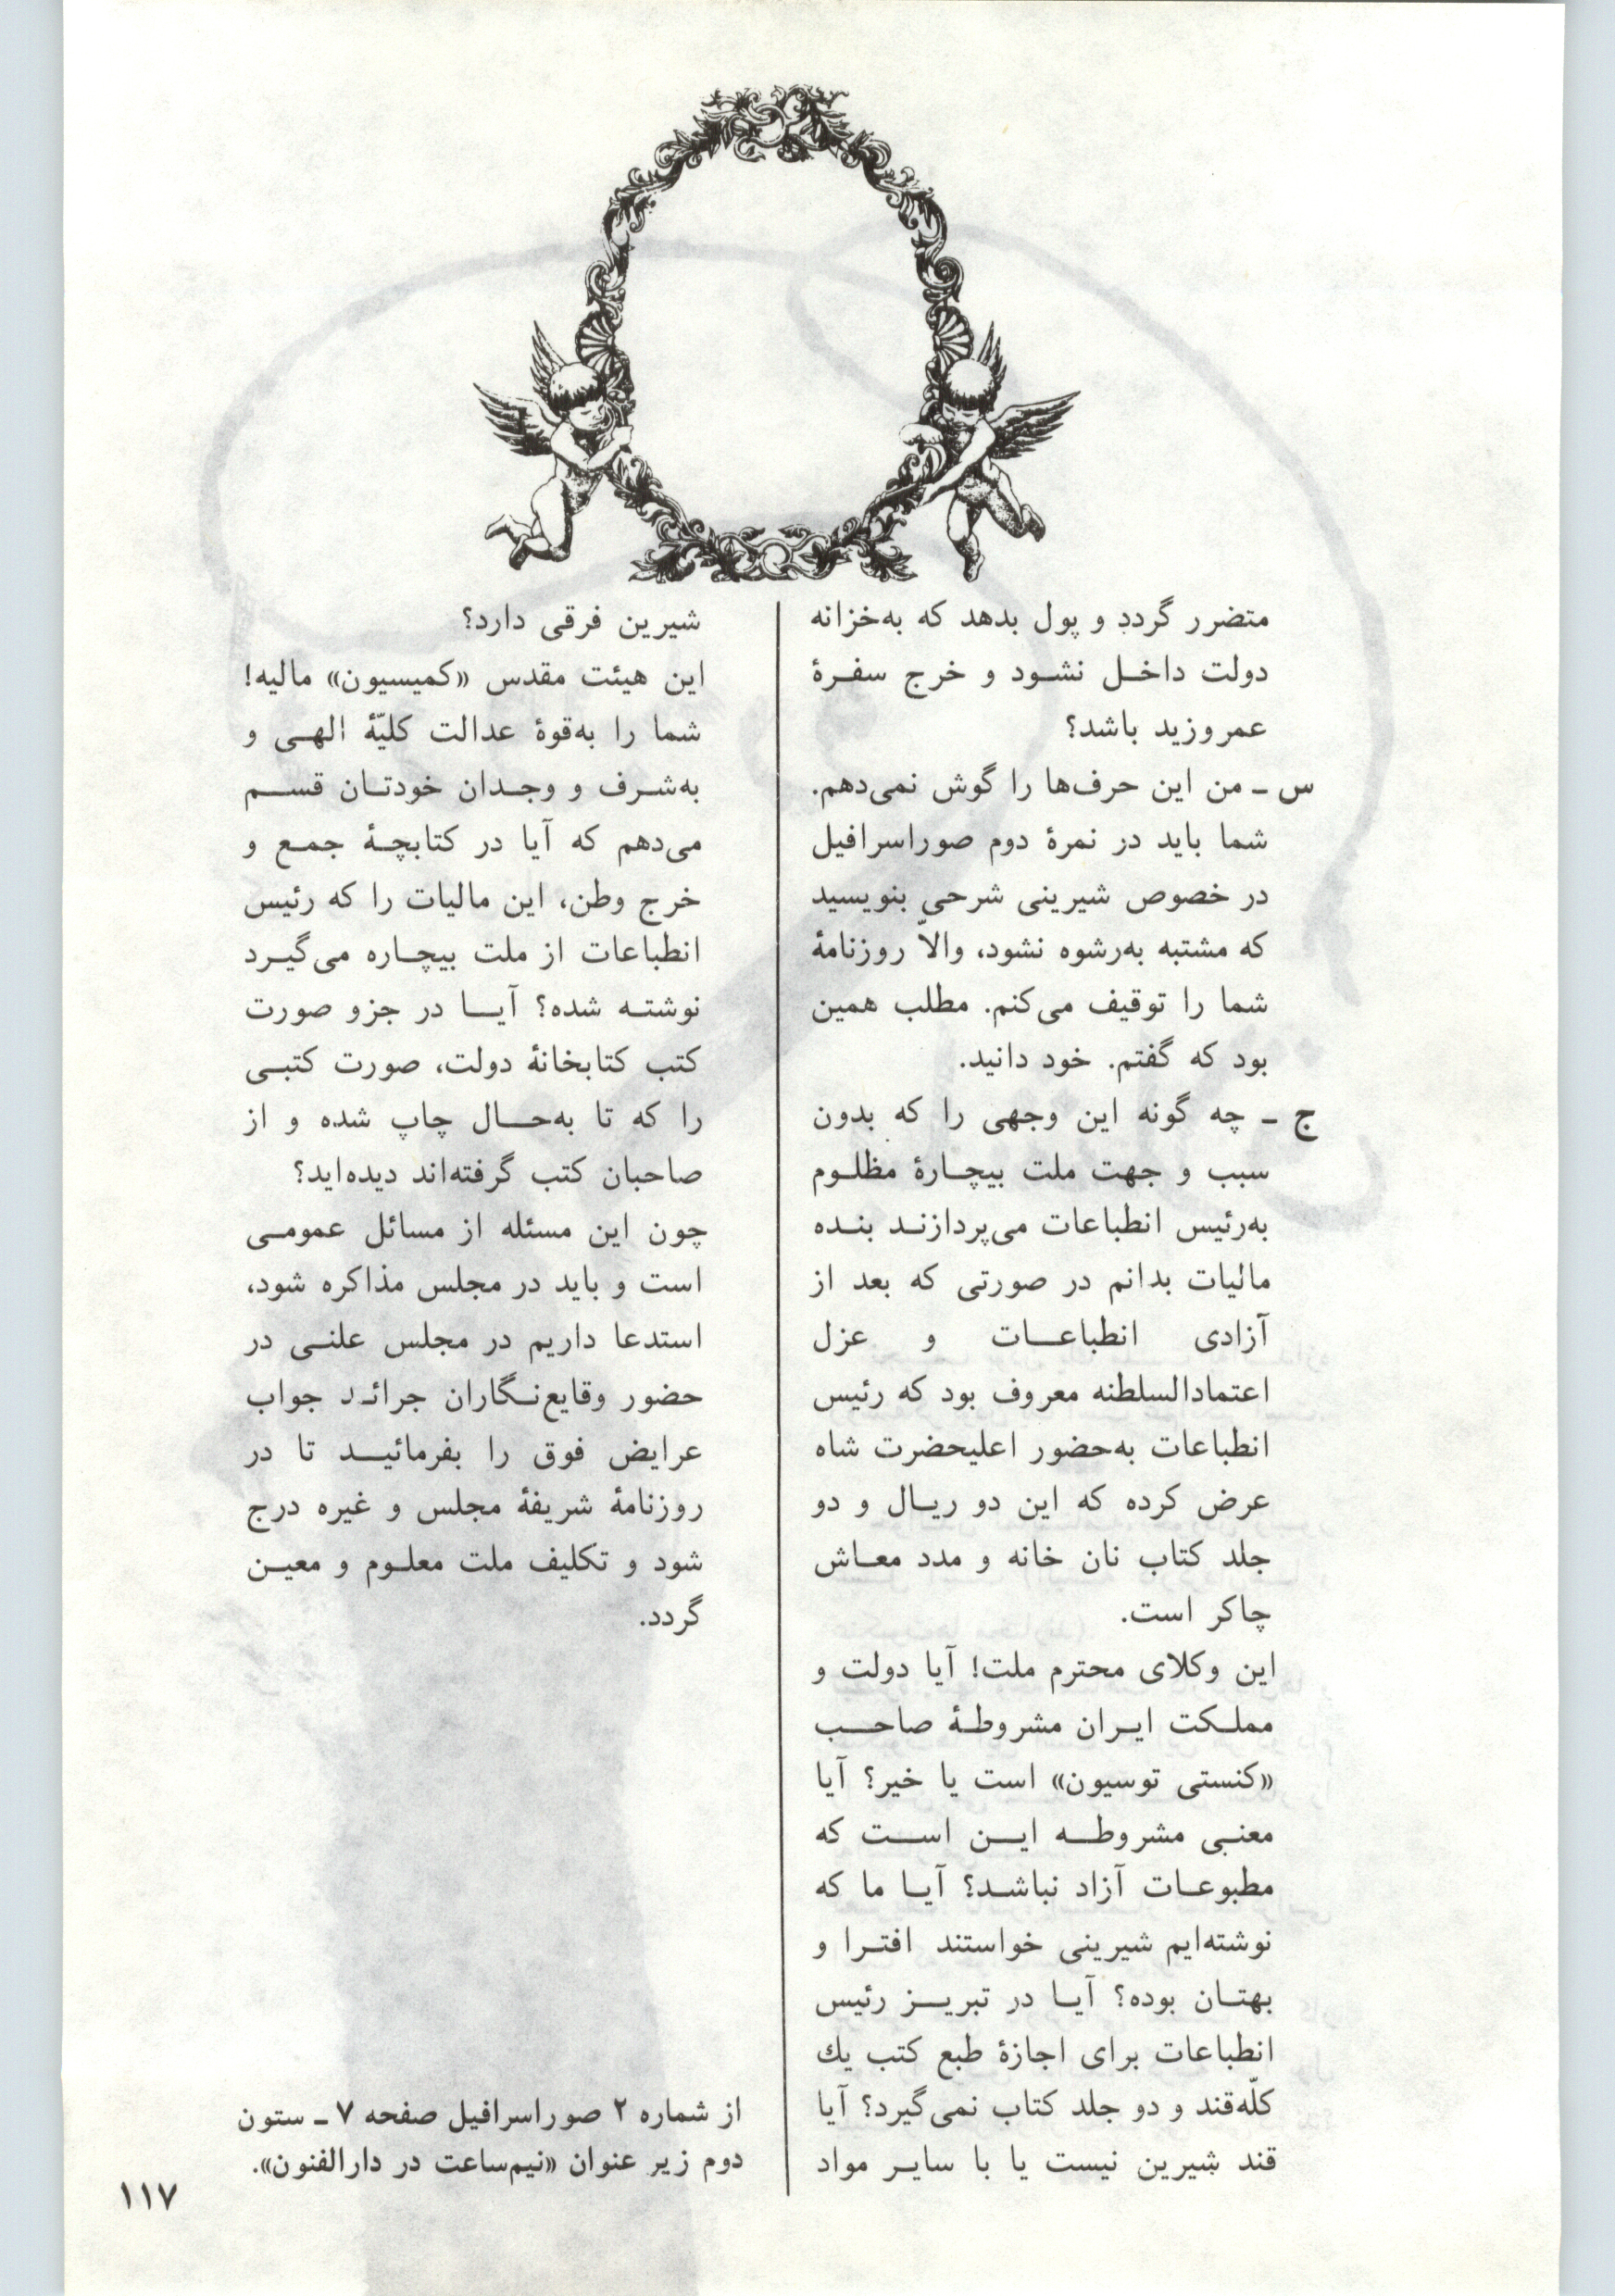 متضرر گردد و پول بدهد که به‌خزانه
دولت داخل نشود و خرج سفرهٔ
عمروزید باشد؟
س ـ من این حرف‌ها را گوش نمی‌دهم.
شما باید در نمرهٔ دوم صوراسرافیل
در خصوص شیرینی شرحی بنویسید
که مشتبه به‌رشوه نشود، والاّ روزنامهٔ
شما را توقیف می‌کنم. مطلب همین
بود که گفتم. خود دانید.
ج ـ چه گونه این وجهی را که بدون
سبب و جهت ملت بیچارهٔ مظلوم
به‌رئیس انطباعات می‌پردازند بنده
مالیات بدانم در صورتی که بعد از
آزادی انطباعات و عزل
اعتمادالسلطنه معروف بود که رئیس
انطباعات به‌حضور اعلیحضرت شاه
عرض کرده که این دو ریال و دو
جلد کتاب نان خانه و مدد معاش
چاکر است.
این وکلای محترم ملت! آیا دولت و
مملکت ایران مشروطهٔ صاحب
«کنستی توسیون» است یا خیر؟ آیا
معنی مشروطه این است که
مطبوعات آزاد نباشد؟ آیا ما که
نوشته‌ایم شیرینی خواستند افترا و
بهتان بوده؟ آیا در تبریز رئیس
انطباعات برای اجازهٔ طبع کتب یك
کلّه‌قند و دو جلد کتاب نمی‌گیرد؟ آیا
قند شیرین نیست یا با سایر مواد
شیرین فرقی دارد؟
این هیئت مقدس «کمیسیون» مالیه!
شما را به‌قوهٔ عدالت کلیّهٔ الهی و
به‌شرف و وجدان خودتان قسم
می‌دهم که آیا در کتابچهٔ جمع و
خرج وطن، این مالیات را که رئیس
انطباعات از ملت بیچاره می‌گیرد
نوشته شده؟ آیا در جزو صورت
کتب کتابخانهٔ دولت، صورت کتبی
را که تا به‌حال چاپ شده و از
صاحبان کتب گرفته‌اند دیده‌اید؟
چون این مسئله از مسائل عمومی
است و باید در مجلس مذاکره شود،
استدعا داریم در مجلس علنی در
حضور وقایع‌نگاران جرائد جواب
عرایض فوق را بفرمائید تا در
روزنامهٔ شریفهٔ مجلس و غیره درج
شود و تکلیف ملت معلوم و معین
گردد.
از شماره ۲ صوراسرافیل صفحه ۷ ـ ستون
دوم زیر عنوان «نیم‌ساعت در دارالفنون».
۱۱۷